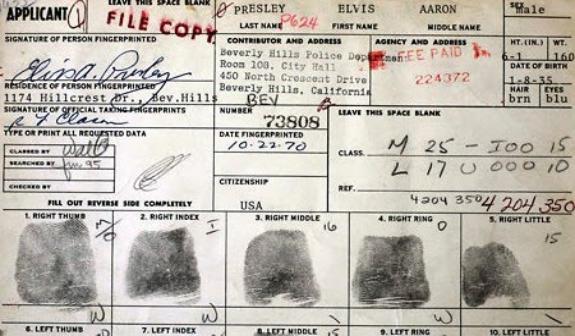 APPLICANT 1
LEAVE THIS SPACE BLANK
FILE COPY
PRESLEY ELVIS AARON
LAST NAME P624 FIRST NAME MIDDLE NAME
SEX male
SIGNATURE OF PERSON FINGERPRINTED
Elvis A. Presley
CONTRIBUTOR AND ADDRESS
Beverly Hills Police Department
Room 108. City Hall
450 North Crescent Drive
Beverly Hills, California
BEV
AGENCY AND ADDRESS
FEE PAID
224372
HT. (IN.) WT.
6-1 160
DATE OF BIRTH
1-8-35
HAIR EYES
brn blu
RESIDENCE OF PERSON FINGERPRINTED
1174 Hillcrest Dr., Bev.Hills
SIGNATURE OF OFFICIAL TAKING FINGERPRINTS
NUMBER
73808
LEAVE THIS SPACE BLANK
TYPE OR PRINT ALL REQUESTED DATA
DATE FINGERPRINTED
10-22-70
CLASSED BY
SEARCHED BY 95
CHECKED BY
CLASS. M 25 - IOO 15
L 17 U 000 10
CITIZENSHIP
USA
REF.
4204 350 4 204 350
FILL OUT REVERSE SIDE COMPLETELY
1. RIGHT THUMB
2. RIGHT INDEX I
3. RIGHT MIDDLE 16
4. RIGHT RING O
5. RIGHT LITTLE 15
W W / W /
6. LEFT THUMB
7. LEFT INDEX
8. LEFT MIDDLE 15
9. LEFT RING
10. LEFT LITTLE